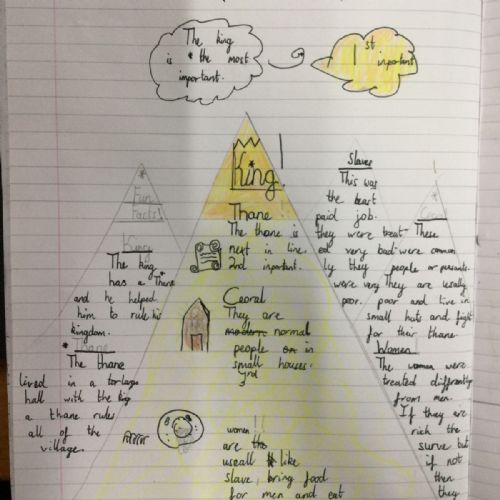 The king
is the most
important.
1st
inportant
King!
Thane
The thane is
next in line.
2nd inportant.
Ceoral
They are
normal
people in
small houses.
3rd
women !!
are the
useall like
slave, bring food
for men and eat
Fun
Facts!
King
The king
has a Thane
and he helped
him to rule his
kingdom.
Thane
The thane
lived in a large
hall with the king
a thane rules
all of the
village.
Arrrrr
Slaves
This was
the least
paid job.
they were treat-
ed very bad.
by they
were very
poor.
These
were common
people or peasants.
They are usally
poor and live in
small huts and fight
for their thane
Women
The women were
treated differently
from men.
If they are
rich the
surve but
if not
then
they